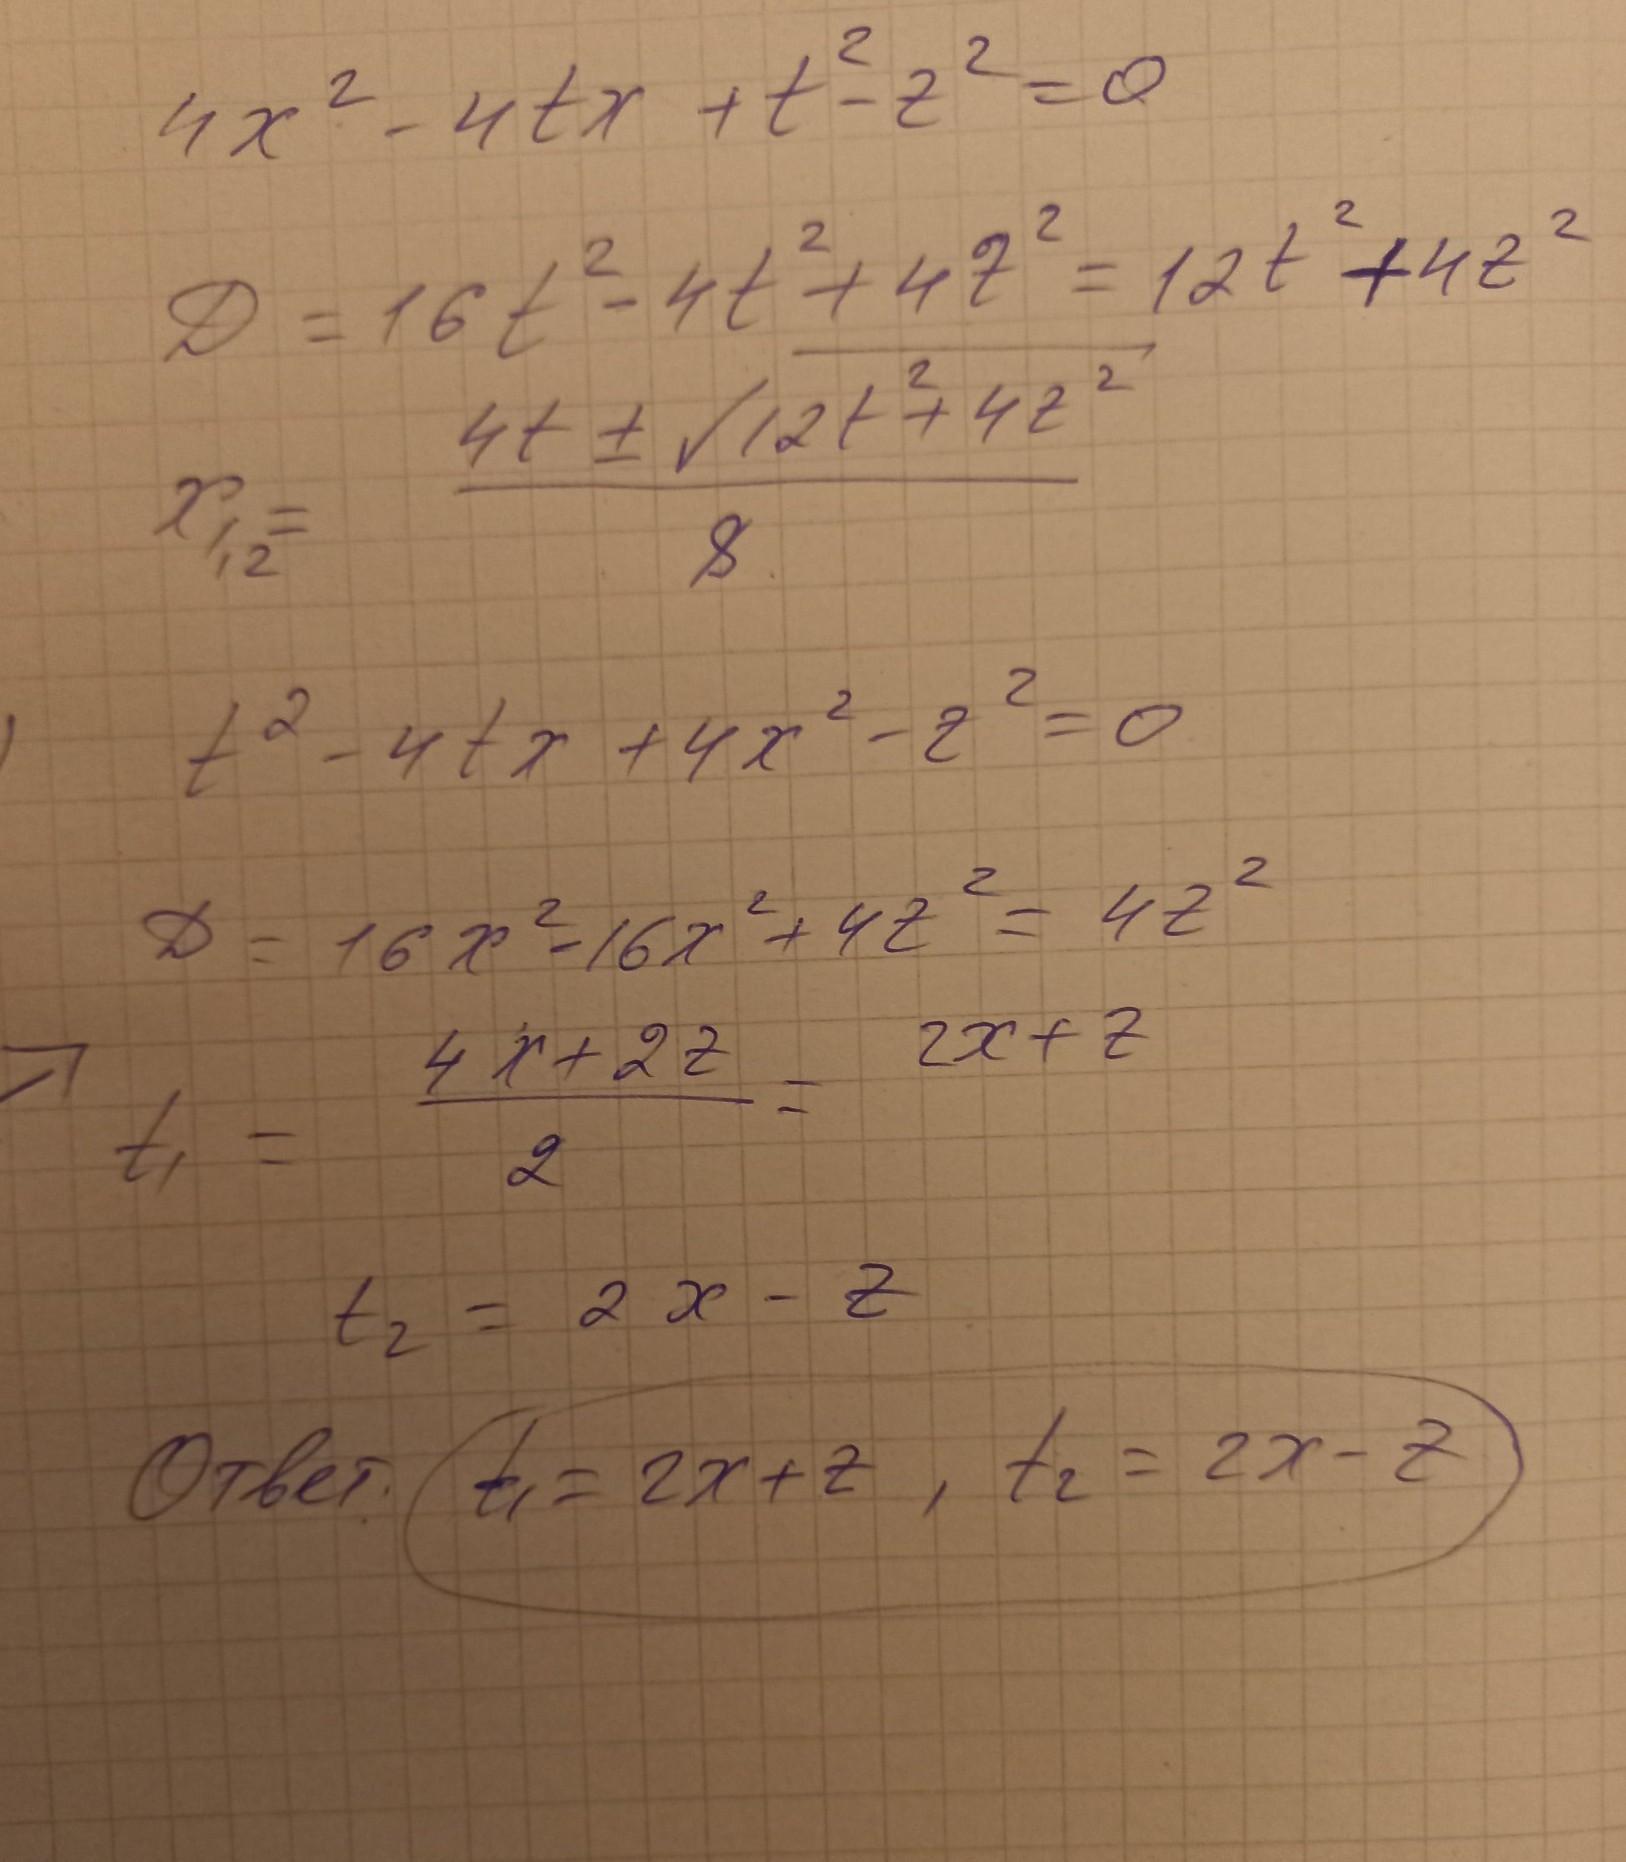 4x² - 4tx + t² - z² = 0
D = 16t² - 4t² + 4z² = 12t² + 4z²
x₁,₂ = (4t ± √12t² + 4z²) / 8
t² - 4tx + 4x² - z² = 0
D = 16x² - 16x² + 4z² = 4z²
t₁ = (4x + 2z) / 2 = 2x + z
t₂ = 2x - z
Ответ. t₁ = 2x + z, t₂ = 2x - z